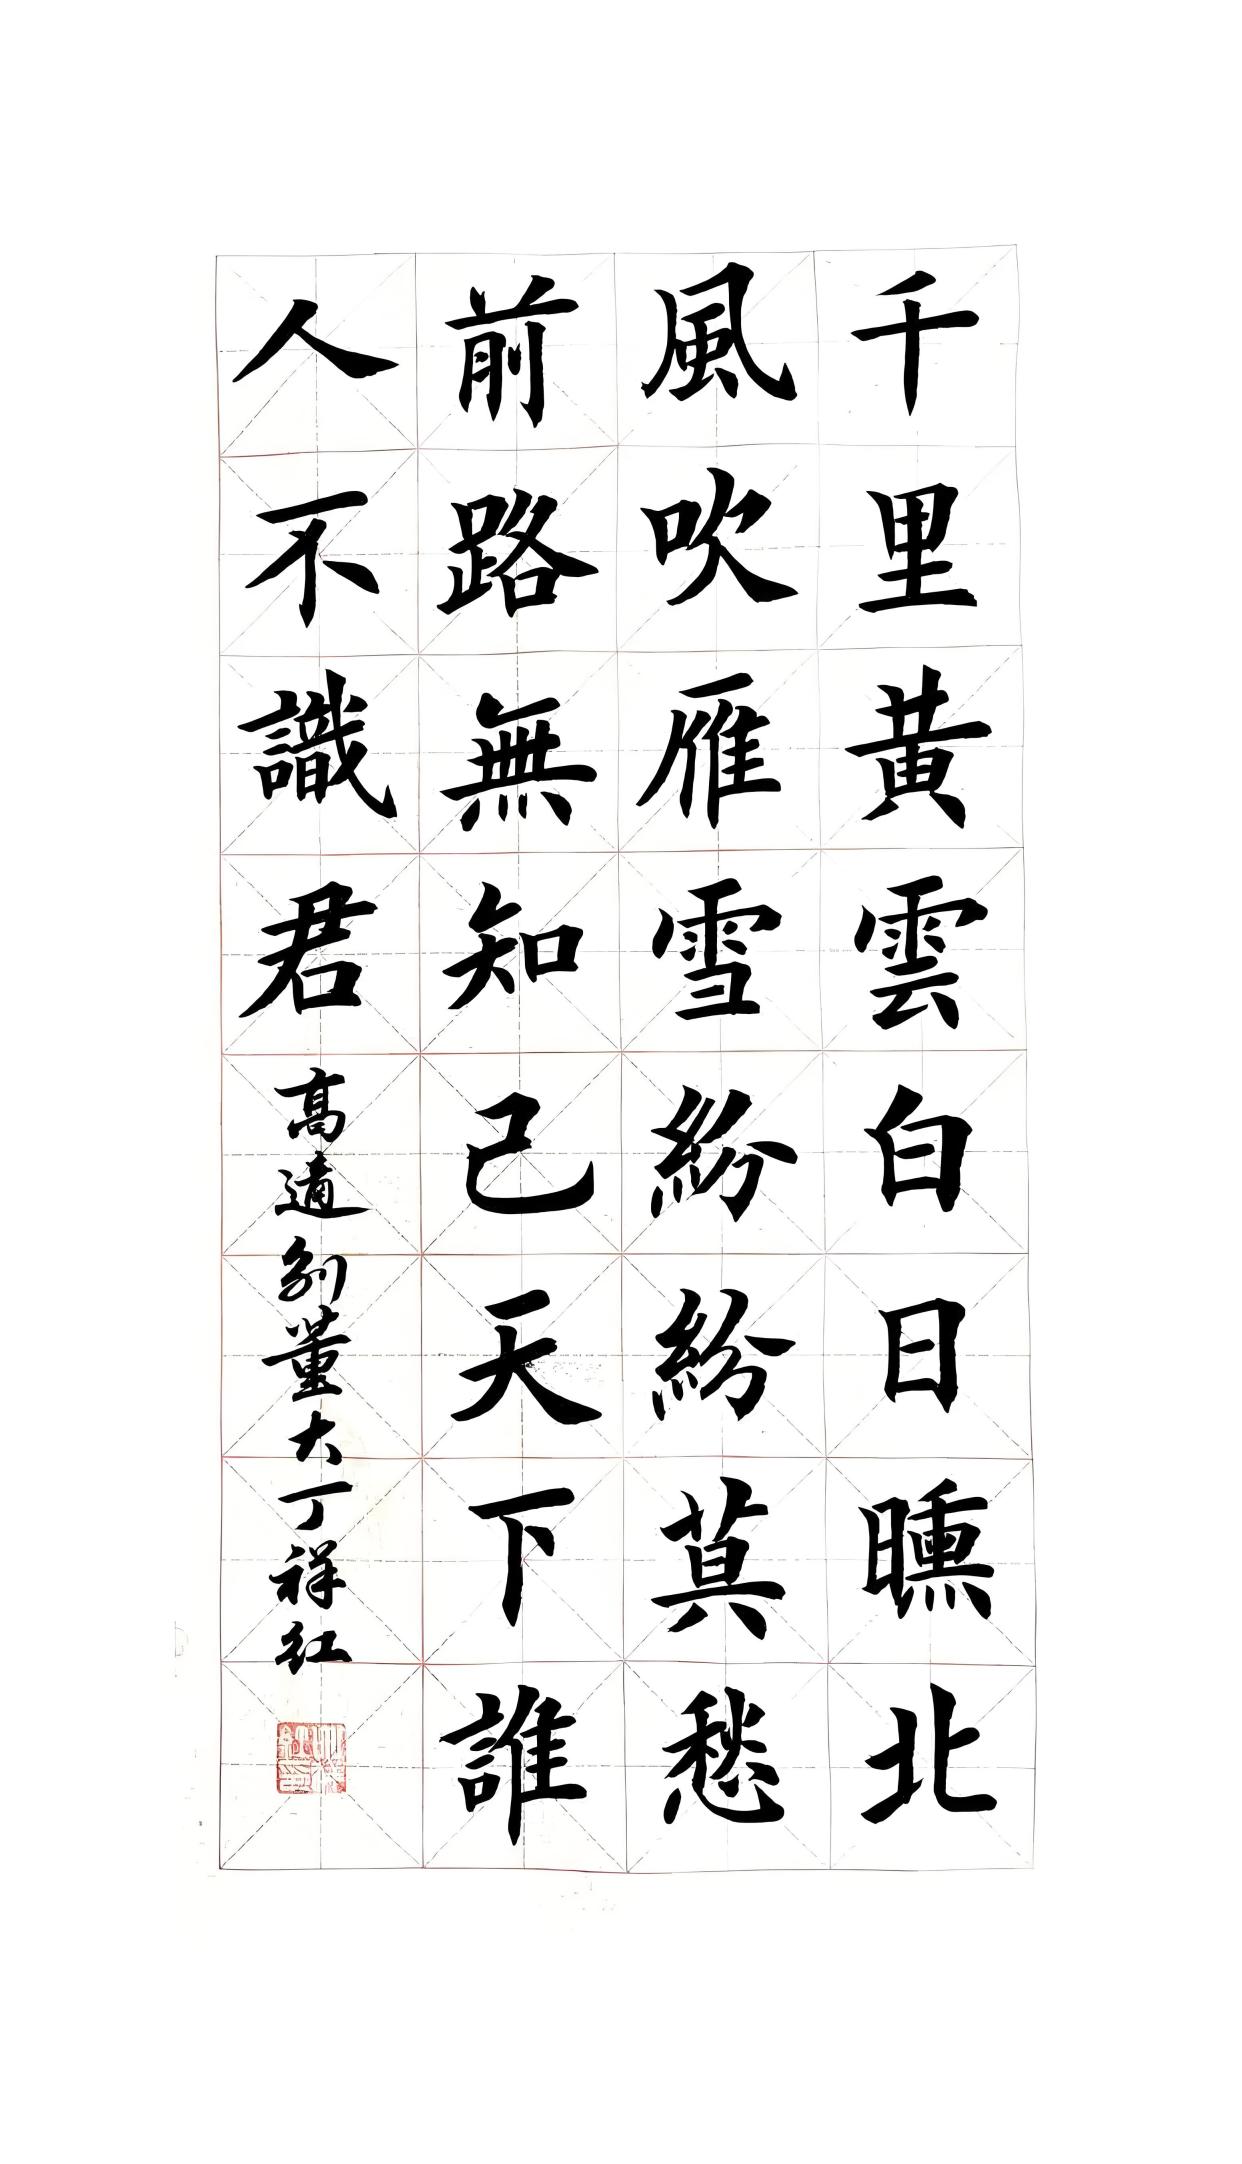 千里黃雲白日曛北
風吹雁雪紛紛莫愁
前路無知己天下誰
人不識君
高適別董大丁祥红